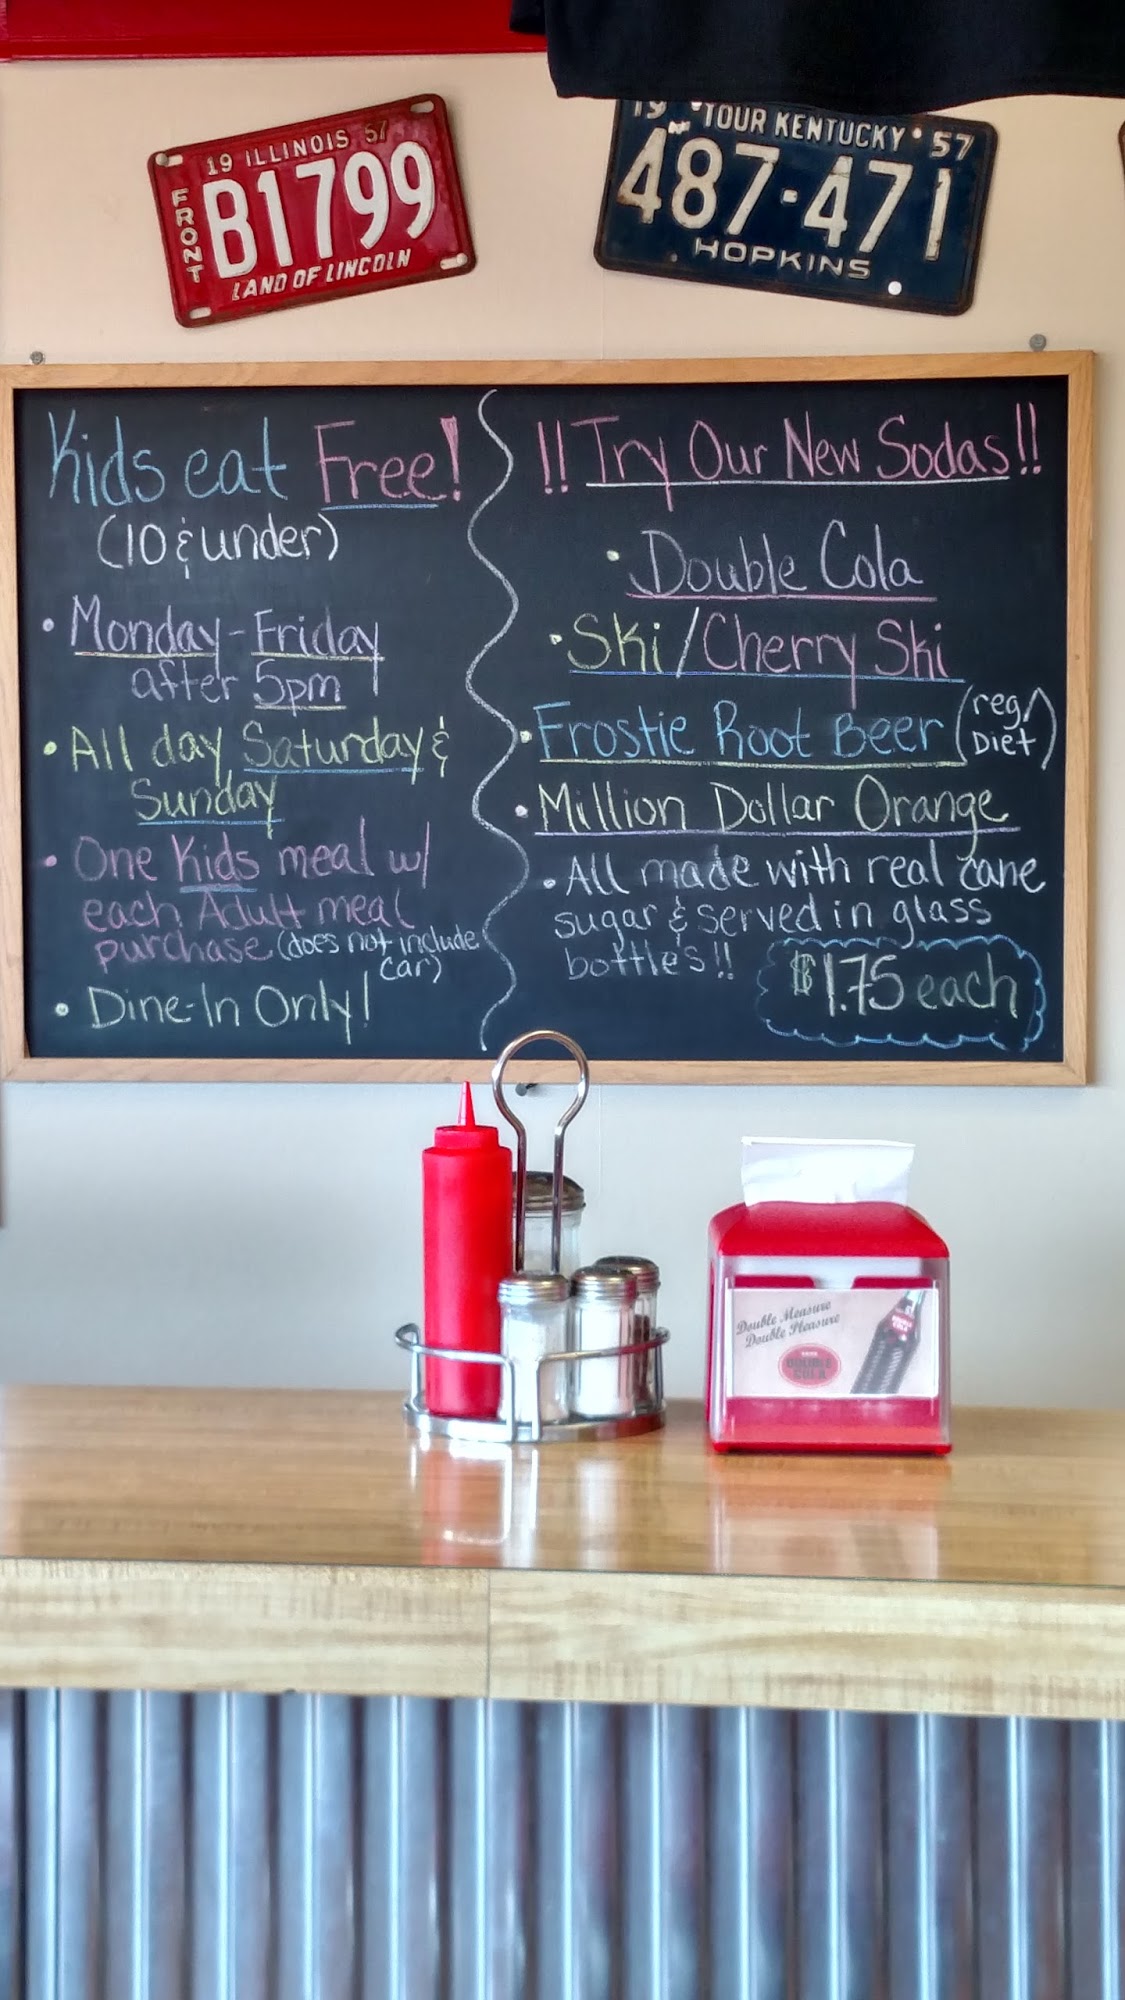 19 ILLINOIS 57
FRONT
B1799
LAND OF LINCOLN
19 TOUR KENTUCKY 57
487·471
HOPKINS
Kids eat Free!
(10 & under)
• Monday - Friday
after 5pm
• All day Saturday &
Sunday
• One Kids meal w/
each Adult meal
purchase (does not include
car)
• Dine-In Only!
!! Try Our New Sodas!!
• Double Cola
• Ski/Cherry Ski
• Frostie Root Beer (reg/
Diet)
• Million Dollar Orange
• All made with real cane
sugar & served in glass
bottles!!
$1.75 each
Double Measure
Double Pleasure
DOUBLE
COLA
DOUBLE
COLA